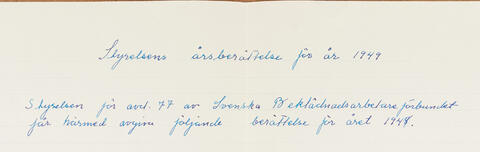 Styrelsens årsberättelse för år 1949
Styrelsen för avd. 77 av Svenska Beklädnadsarbetareförbundet
får härmed avgiva följande berättelse för året 1949.